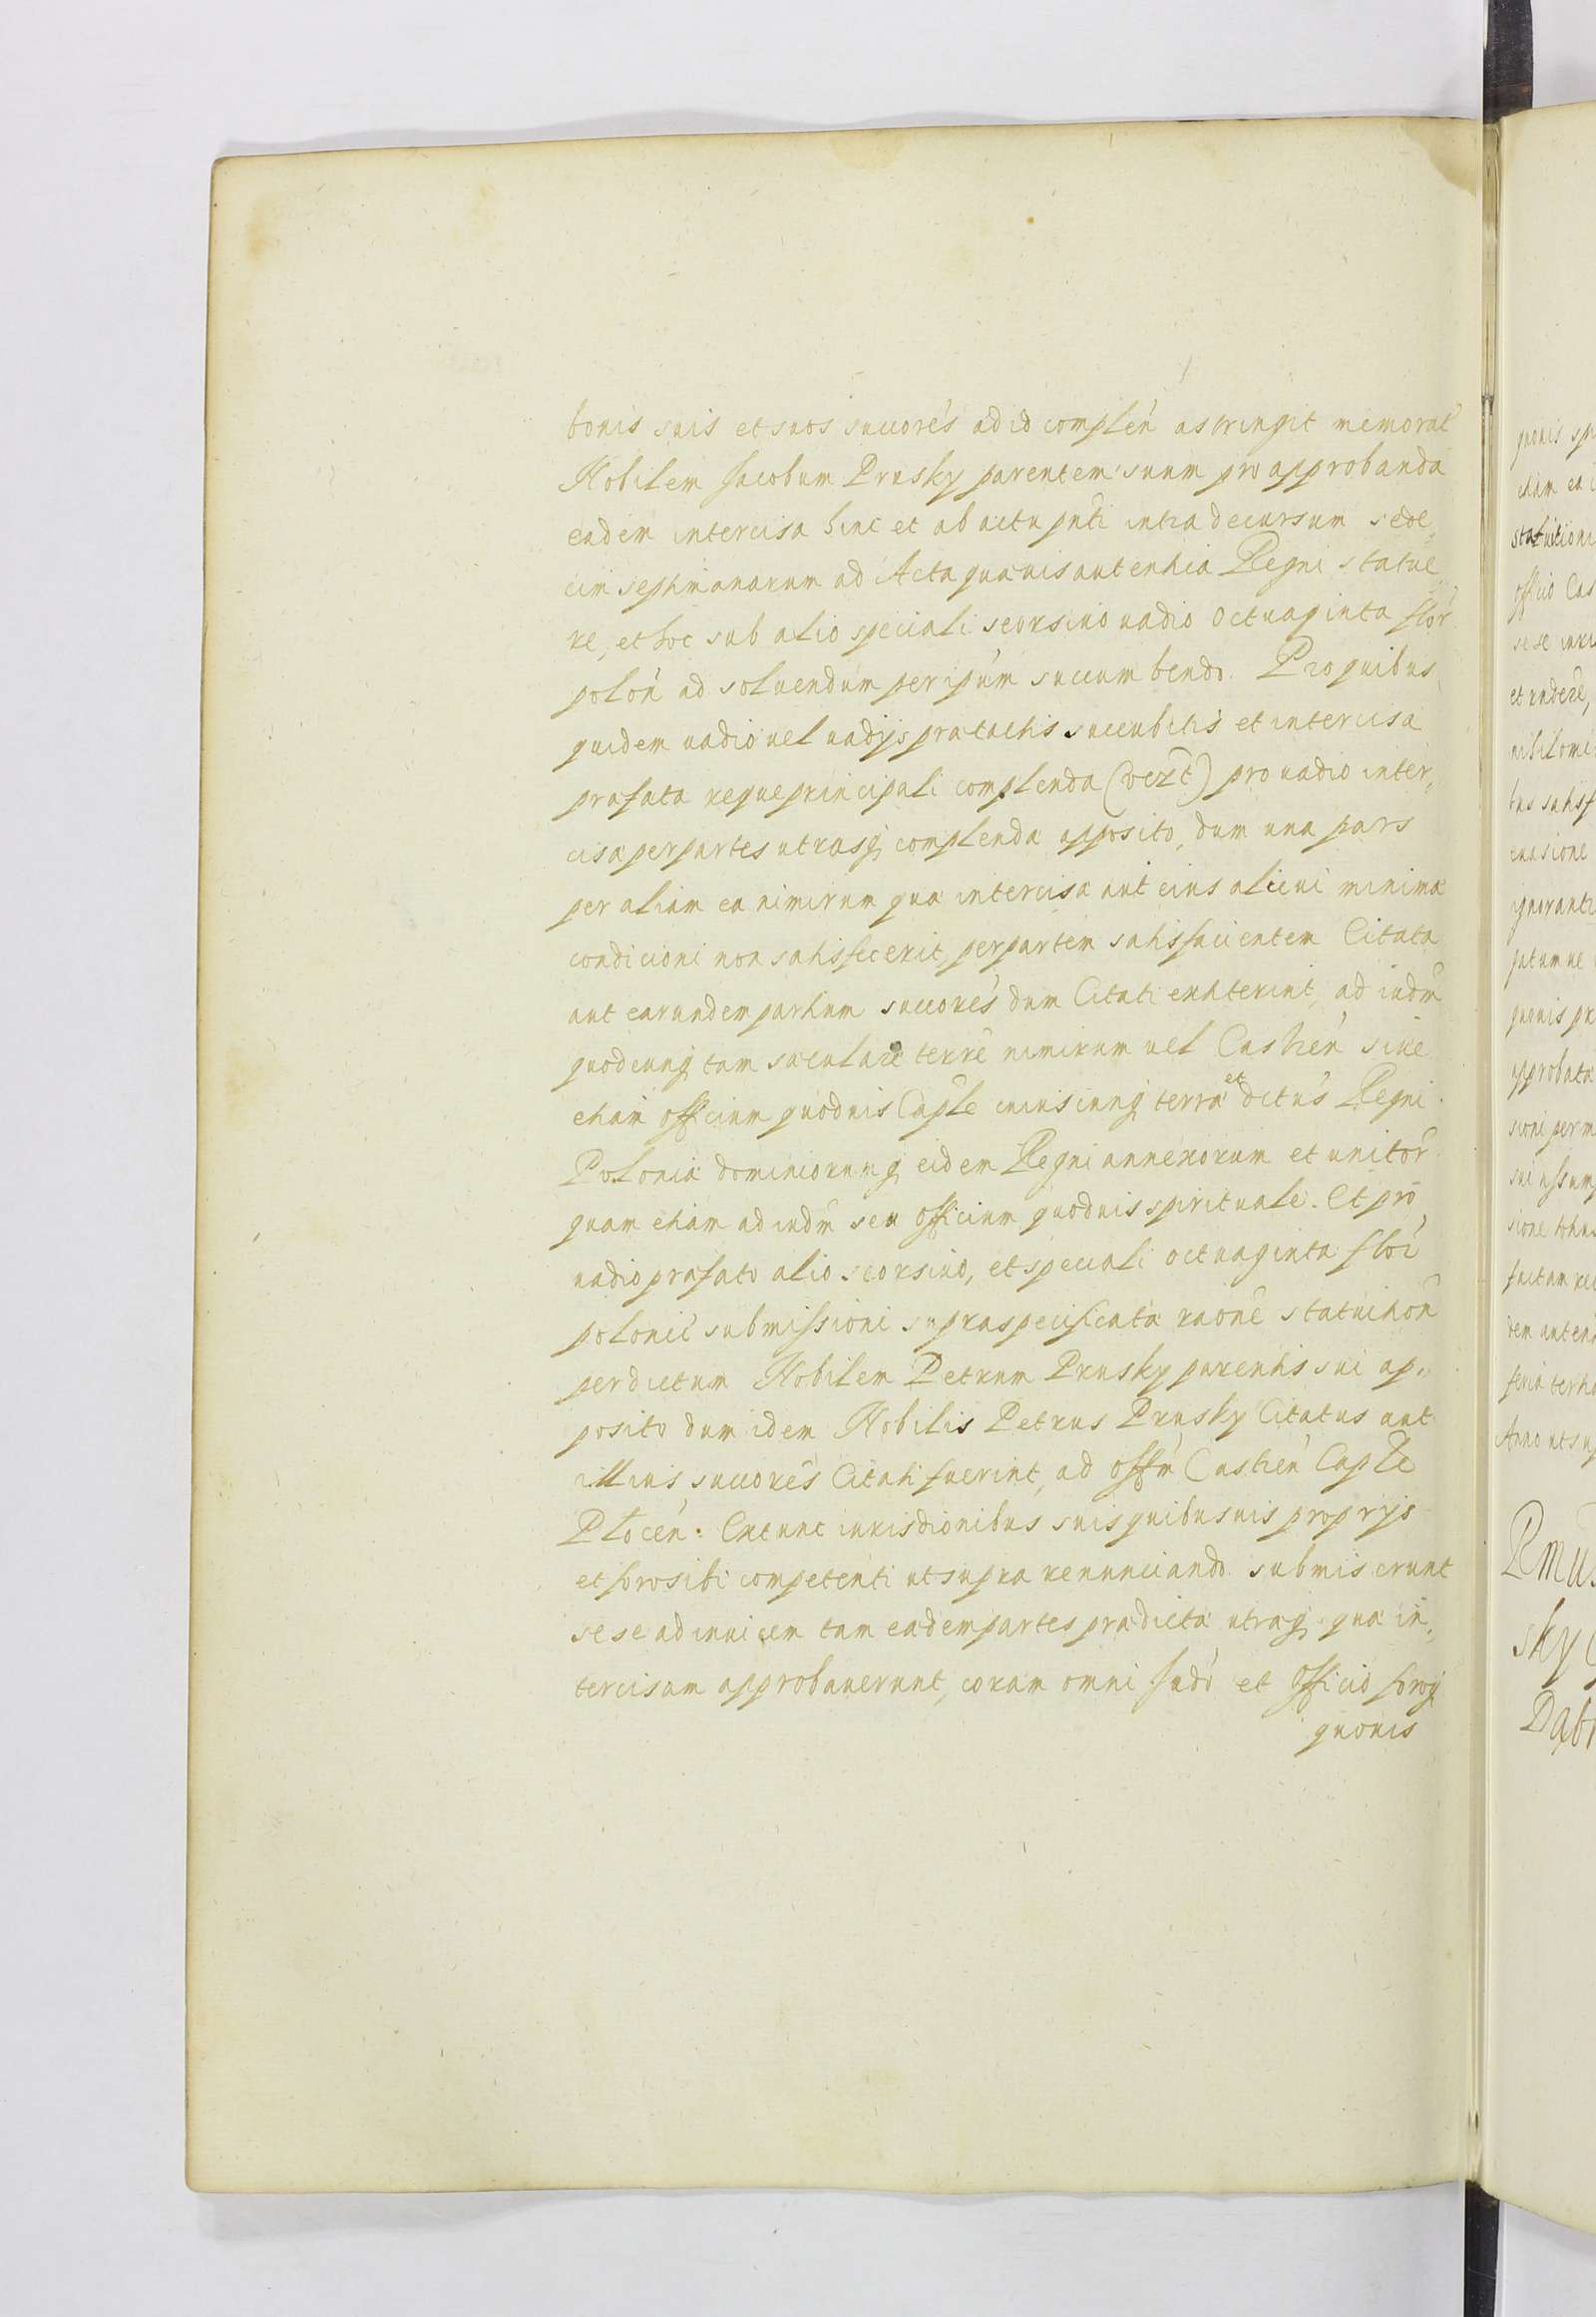 bonis suis et suos succorés ad id complén astringit memorat
Nobilem Jacobum Prusky parentem suum pro approbanda
eadem intercisa hinc et ab actu pnti intra decursum sede„
cim septimanarum ad Acta quævis autentica Regni statue„
re, et hoc sub alio speciali seorsivo vadio octuaginta flor
polon ad solvendum per ipūm succumbendo. Pro quibus
quidem vadio vel vadijs prætactis succubitis et intercisa
præfata reque principali complenda (vert) pro vadio inter„
cisæ per partes utrasq complenda apposito, dum una pars
per aliam ea nimirum quæ intercisæ aut eius alicui minimæ
condicioni non satisfecerit, per partem satisfacientem Citata
aut earundem partium succorés dum Citati extiterint, ad iudm
quodcunq tam sæculare terrē nimirum vel Castrēn sive
etiam officium quodvis Caple cuiuscunq terræ et dctūs Regni
Poloniæ dominiorumq eidem Regni annexorum et unitor
quam etiam ad iudm seu officium quodvis spirituale. Et pro
vadio præfato alio seorsivo, et speciali octuaginta flor
polonic submissioni supraspecificatæ raone statuition
per dictum Nobilem Petrum Prusky parentis sui ap„
posito dum idem Nobilis Petrus Prusky Citatus aut
illius succorēs Citati fuerint, ad offm Castrēn Caple
Płocēn: Extunc iurisdionibus suis quibusvis proprijs
et foro sibi competenti ut supra renunciando submiserunt
sese ad invicem tam eædem partes prædictæ utraq quæ in„
tercisam approbaverunt, coram omni Judō et officio foroq
quovis